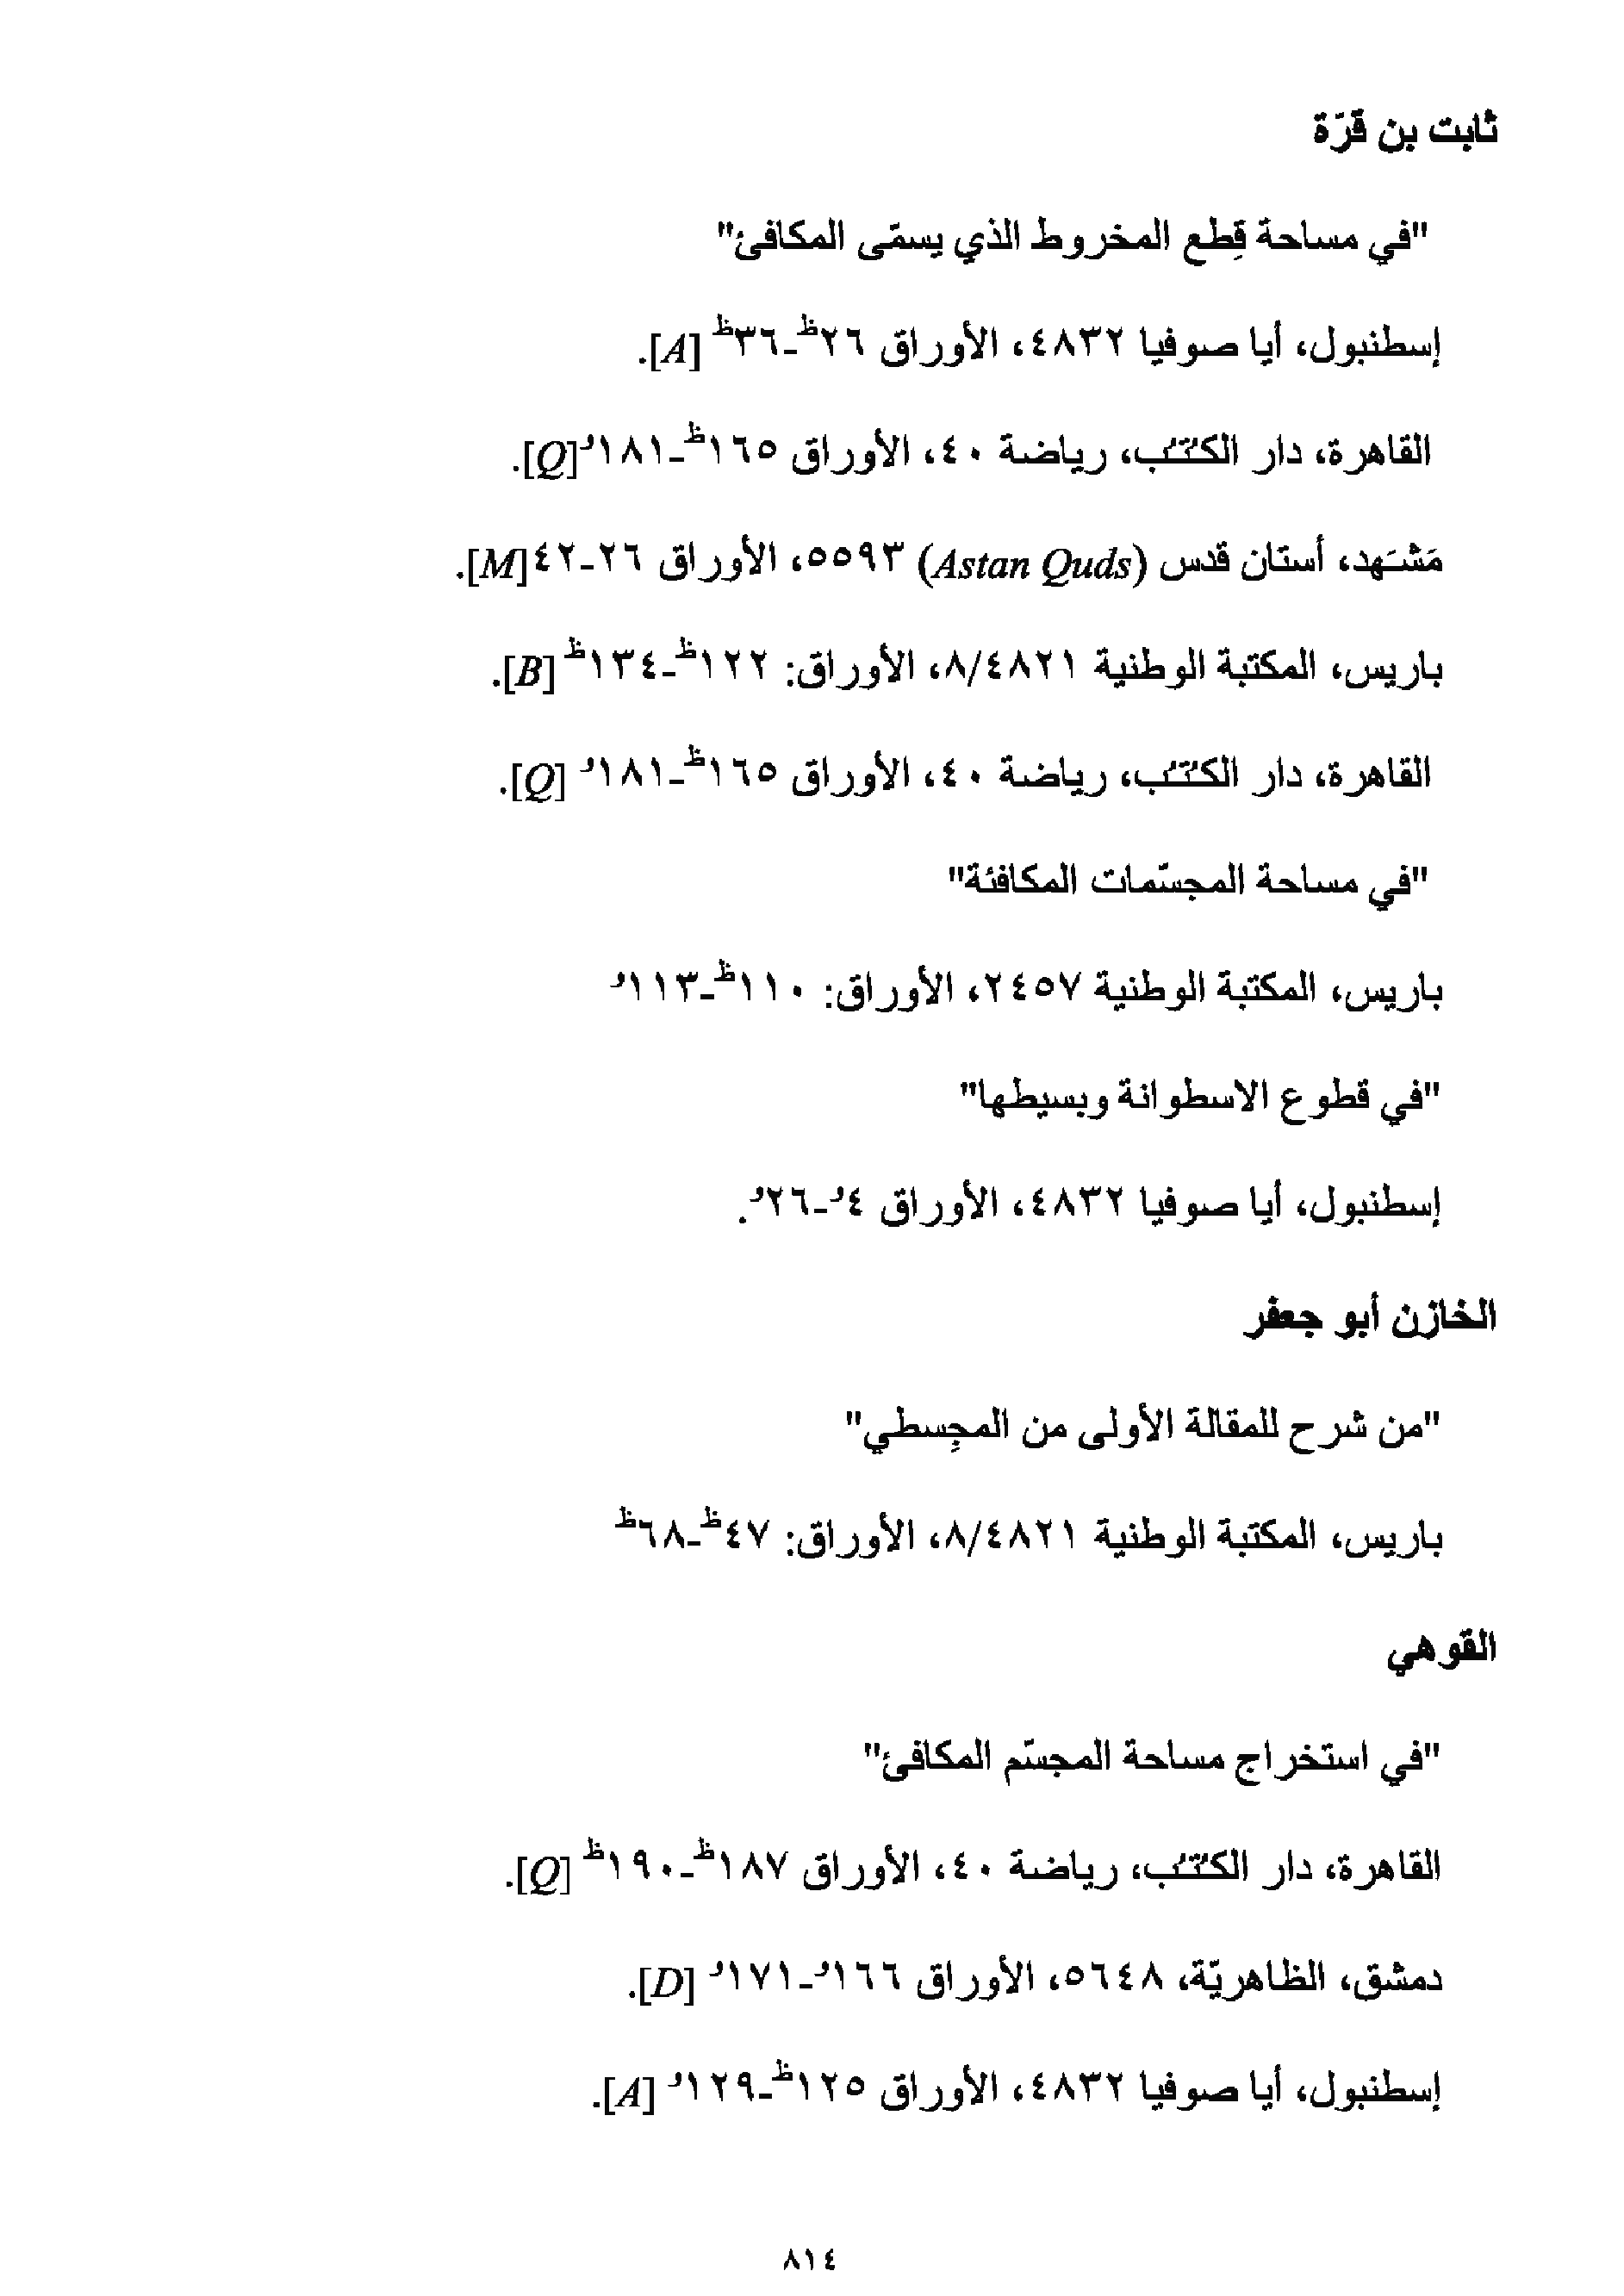 ثابت بن قرّة
"في مساحة قِطع المخروط الذي يسمّى المكافئ"
إسطنبول، أيا صوفيا ٤٨٣٢، الأوراق ٢٦ظ-٣٦ظ [A].
القاهرة، دار الكتب، رياضة ٤٠، الأوراق ١٦٥ظ-١٨١و[Q].
مَشهَد، أستان قدس (Astan Quds) ٥٥٩٣، الأوراق ٢٦-٤٢[M].
باريس، المكتبة الوطنية ٨/٤٨٢١، الأوراق: ١٢٢ظ-١٣٤ظ [B].
القاهرة، دار الكتب، رياضة ٤٠، الأوراق ١٦٥ظ-١٨١و [Q].
"في مساحة المجسّمات المكافئة"
باريس، المكتبة الوطنية ٢٤٥٧، الأوراق: ١١٠ظ-١١٣و
"في قطوع الاسطوانة وبسيطها"
إسطنبول، أيا صوفيا ٤٨٣٢، الأوراق ٤و-٢٦و.
الخازن أبو جعفر
"من شرح للمقالة الأولى من المجِسطي"
باريس، المكتبة الوطنية ٨/٤٨٢١، الأوراق: ٤٧ظ-٦٨ظ
القوهي
"في استخراج مساحة المجسّم المكافئ"
القاهرة، دار الكتب، رياضة ٤٠، الأوراق ١٨٧ظ-١٩٠ظ [Q].
دمشق، الظاهريّة، ٥٦٤٨، الأوراق ١٦٦و-١٧١و [D].
إسطنبول، أيا صوفيا ٤٨٣٢، الأوراق ١٢٥ظ-١٢٩و [A].
٨١٤